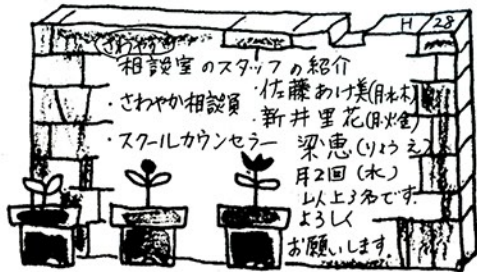 H 28
さわやか
相談室のスタッフの紹介
・さわやか相談員 ・佐藤あけ美(月水木)
・新井里花(月火金)
・スクールカウンセラー 梁恵(りょうえ)
月2回(水)
以上3名です。
よろしく
お願いします。